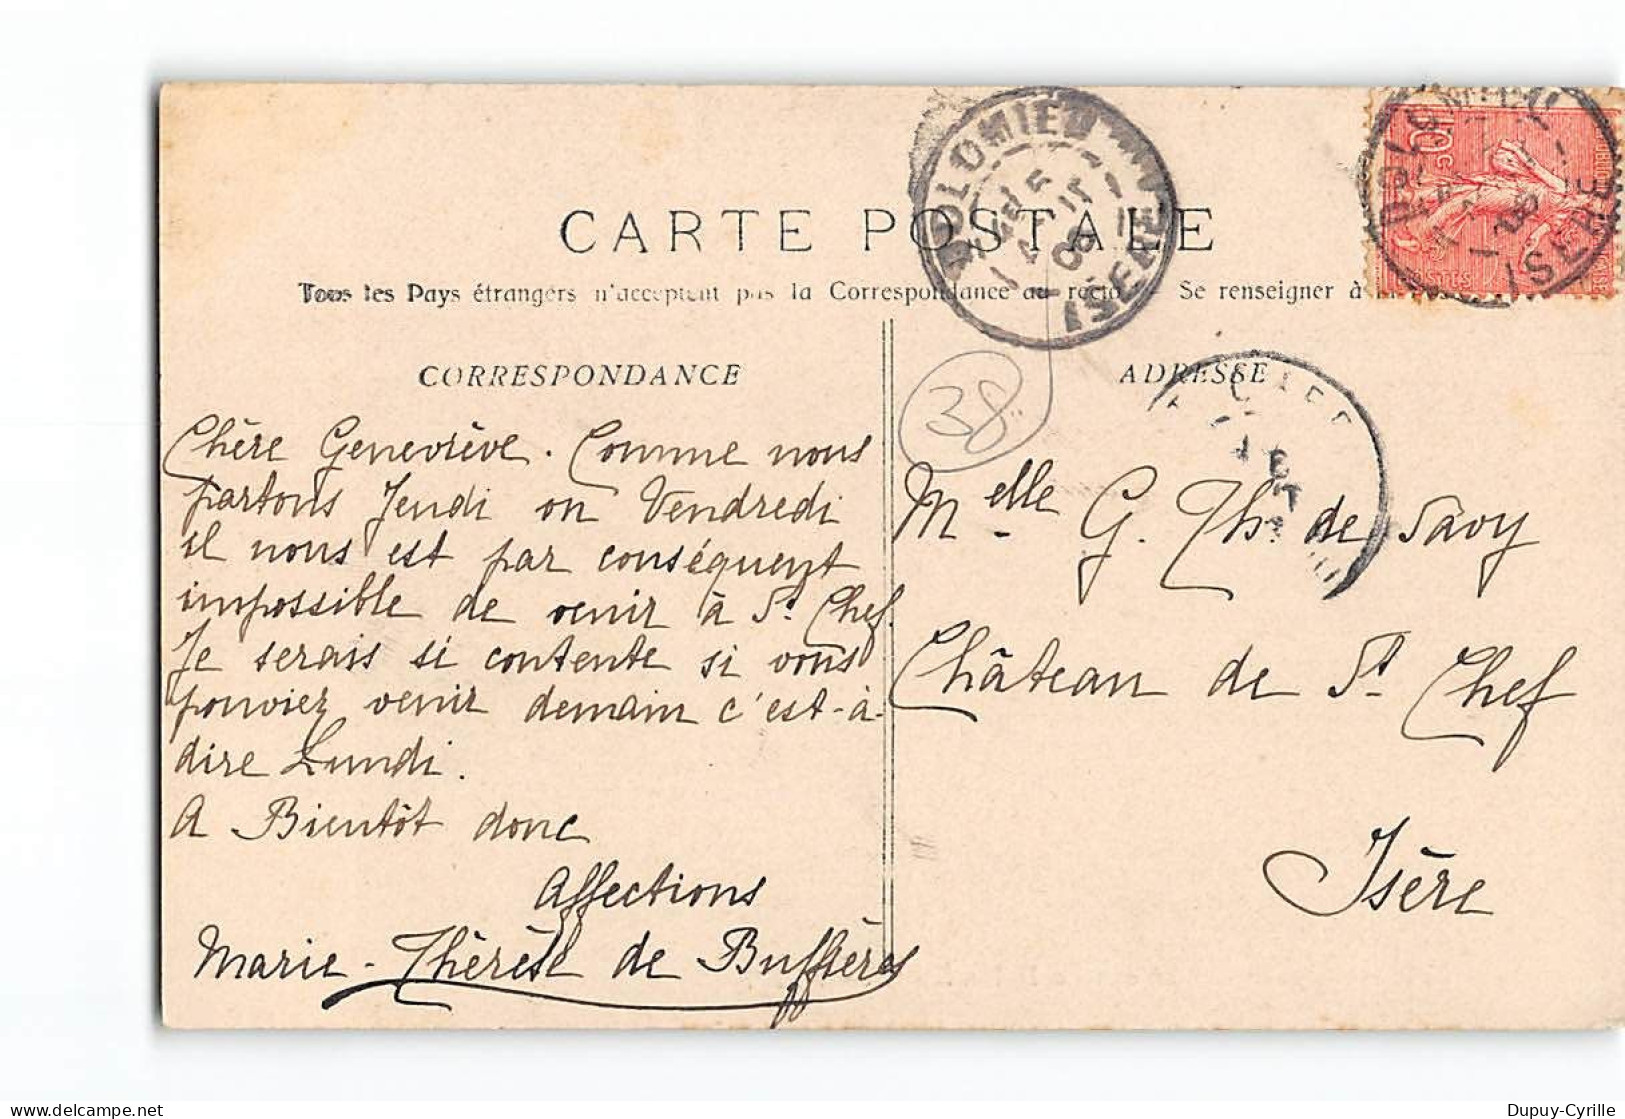 CARTE POSTALE
Tous les Pays étrangers n'acceptent pas la Correspondance au recto — Se renseigner à la
DOLOMIEU
ISÈRE
DOLOMIEU
ISÈRE
10 c
POSTES
CORRESPONDANCE
ADRESSE
38
Chère Geneviève. Comme nous
partons Jeudi ou Vendredi
il nous est par conséquent
impossible de venir à St. Chef.
Je serais si contente si vous
pouviez venir demain c'est-à-
dire Lundi.
A Bientôt donc
Affections
Marie-Thérèse de Buffières
Melle G. Th. de Savoy
Château de St Chef
Isère
Dupuy-Cyrille